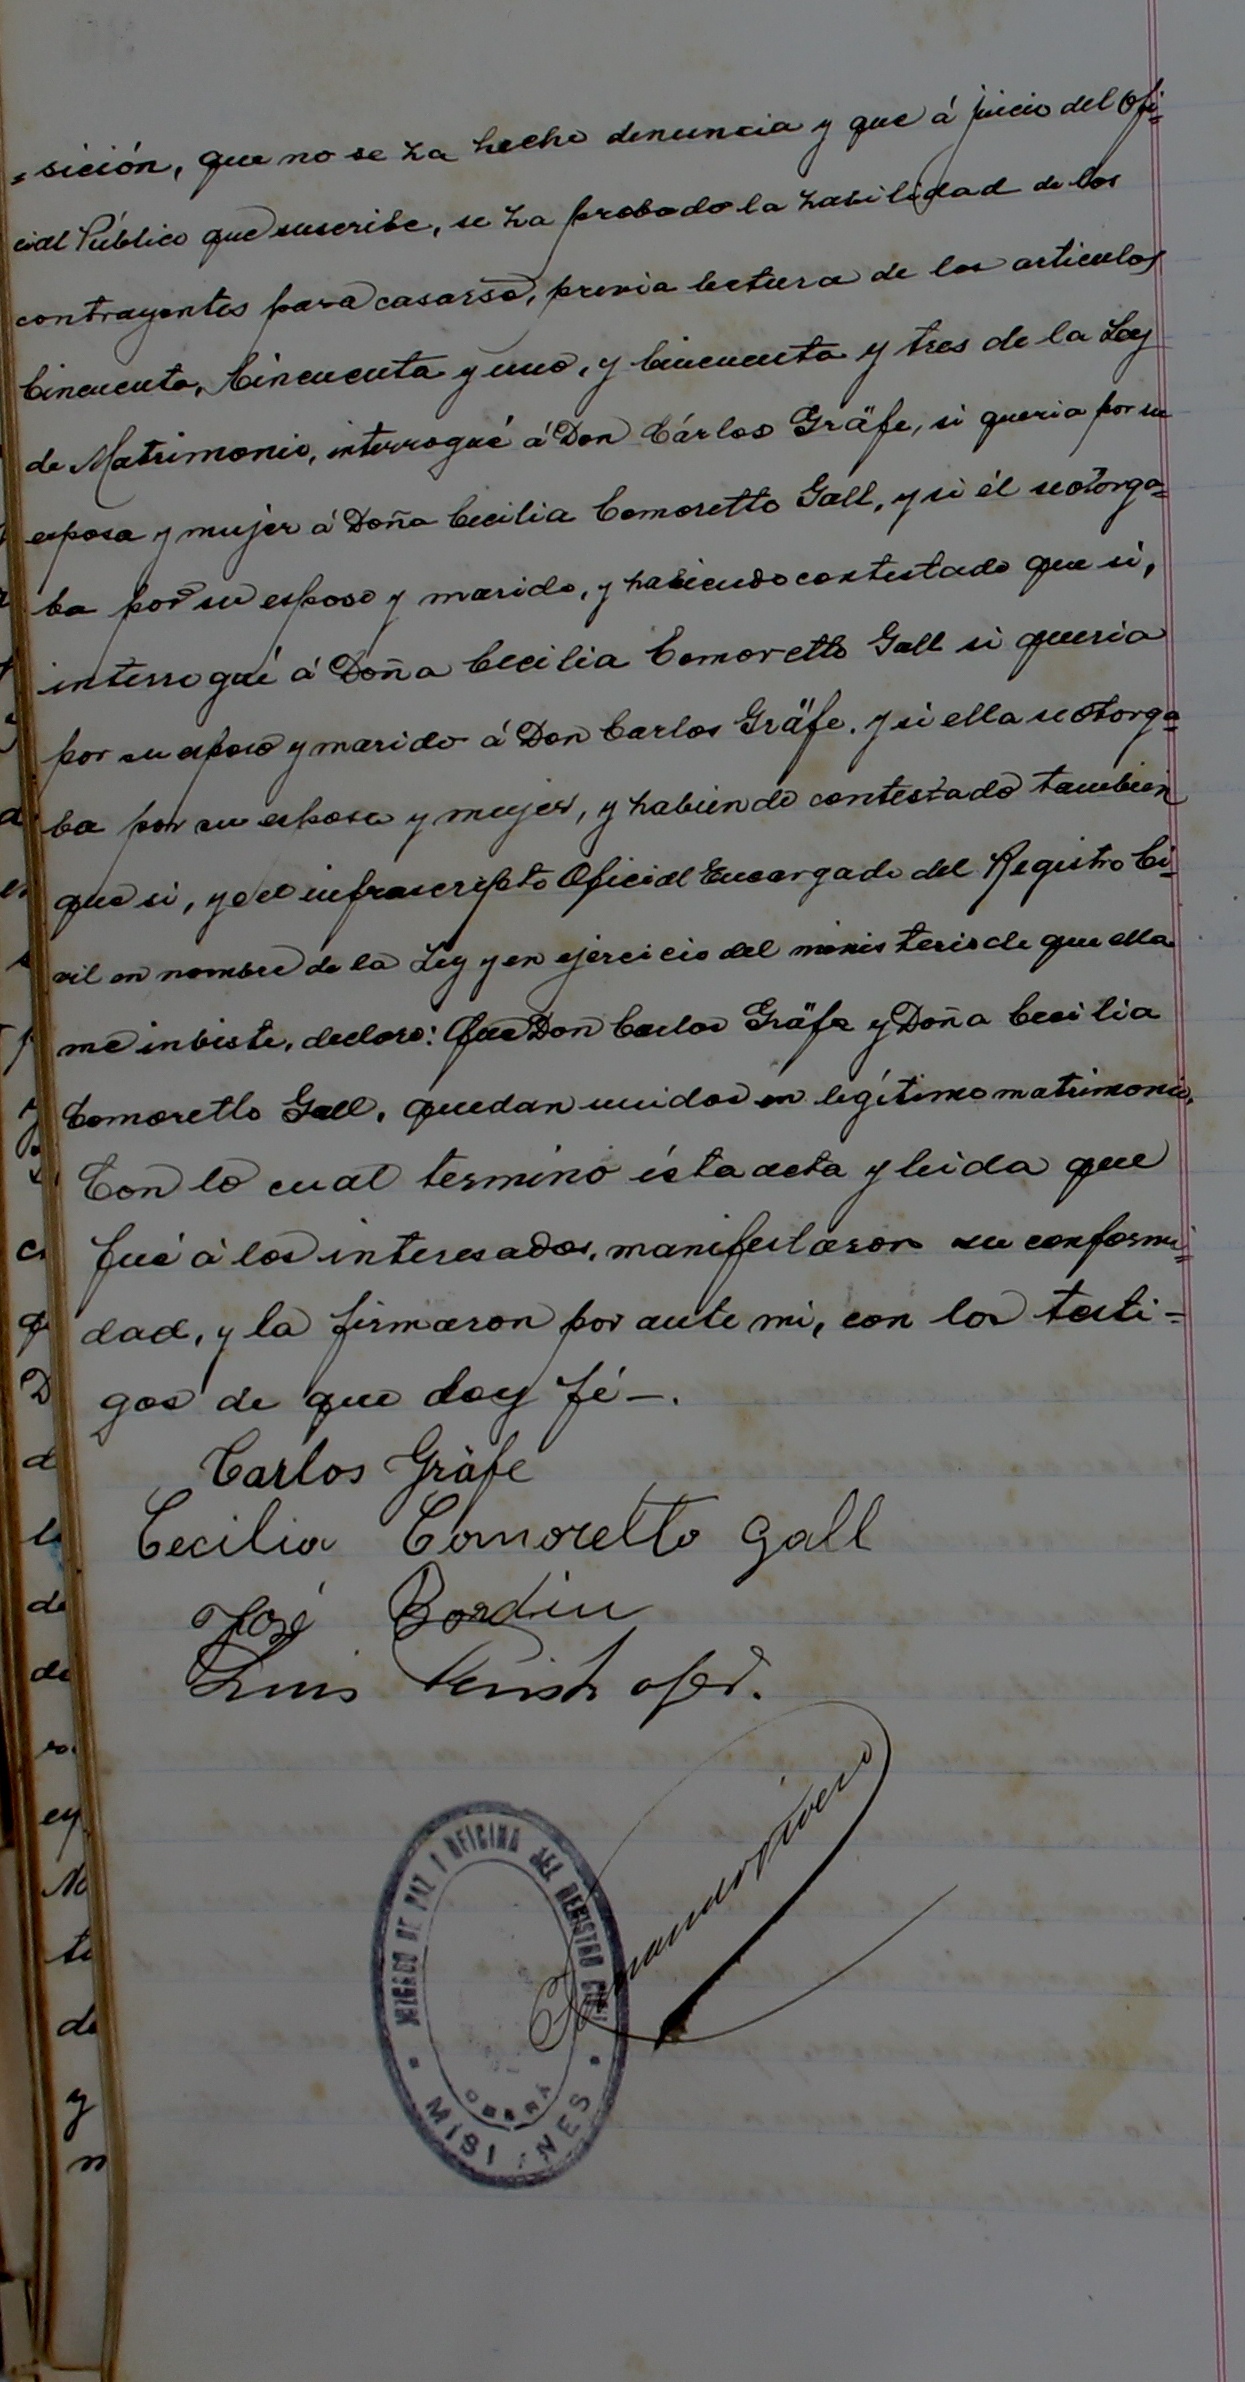 =sición, que no se ha hecho denuncia y que á juicio del Ofi=
cial Público que suscribe, se ha probado la habilidad de los
contrayentes para casarse, previa lectura de los articulos
Cincuenta, Cincuenta y uno, y Cincuenta y tres de la Ley
de Matrimonio, interrogué á Don Cárlos Gräfe, si queria por su
esposa y mujer á Doña Cecilia Comoretto Gall, y si él se otorga=
ba por su esposo y marido, y habiendo contestado que si,
interrogué á Doña Cecilia Comoretto Gall si queria
por su esposo y marido á Don Carlos Gräfe. y si ella se otorga=
ba por su esposa y mujer, y habiendo contestado tambien
que si, yo el infrascripto Oficial Encargado del Registro Ci=
vil en nombre de la Ley y en ejercicio del ministerio de que ella
me inviste, declaro: Que Don Carlos Gräfe y Doña Cecilia
Comoretto Gall, quedan unidos en legítimo matrimonio.
Con lo cual terminó ésta acta y leida que
fué á los interesados, manifestaron su conformi=
dad, y la firmaron por ante mi, con los testi=
gos de que doy fé—.
Carlos Gräfe
Cecilia Comoretto Gall
José Bordin
Luis
JUZGADO DE PAZ Y OFICINA DEL REGISTRO CIVIL
OBERÁ
MISIONES